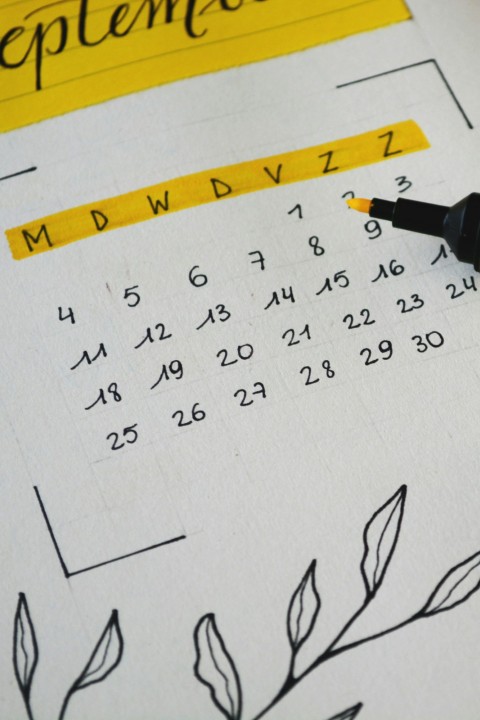 eptem
M D W D V Z Z
1 2 3
4 5 6 7 8 9
11 12 13 14 15 16
18 19 20 21 22 23 24
25 26 27 28 29 30